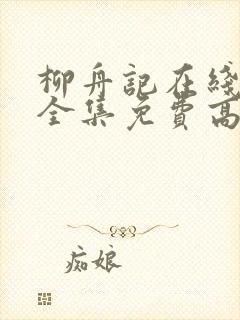 柳舟記在綫
全集免費高
痴娘